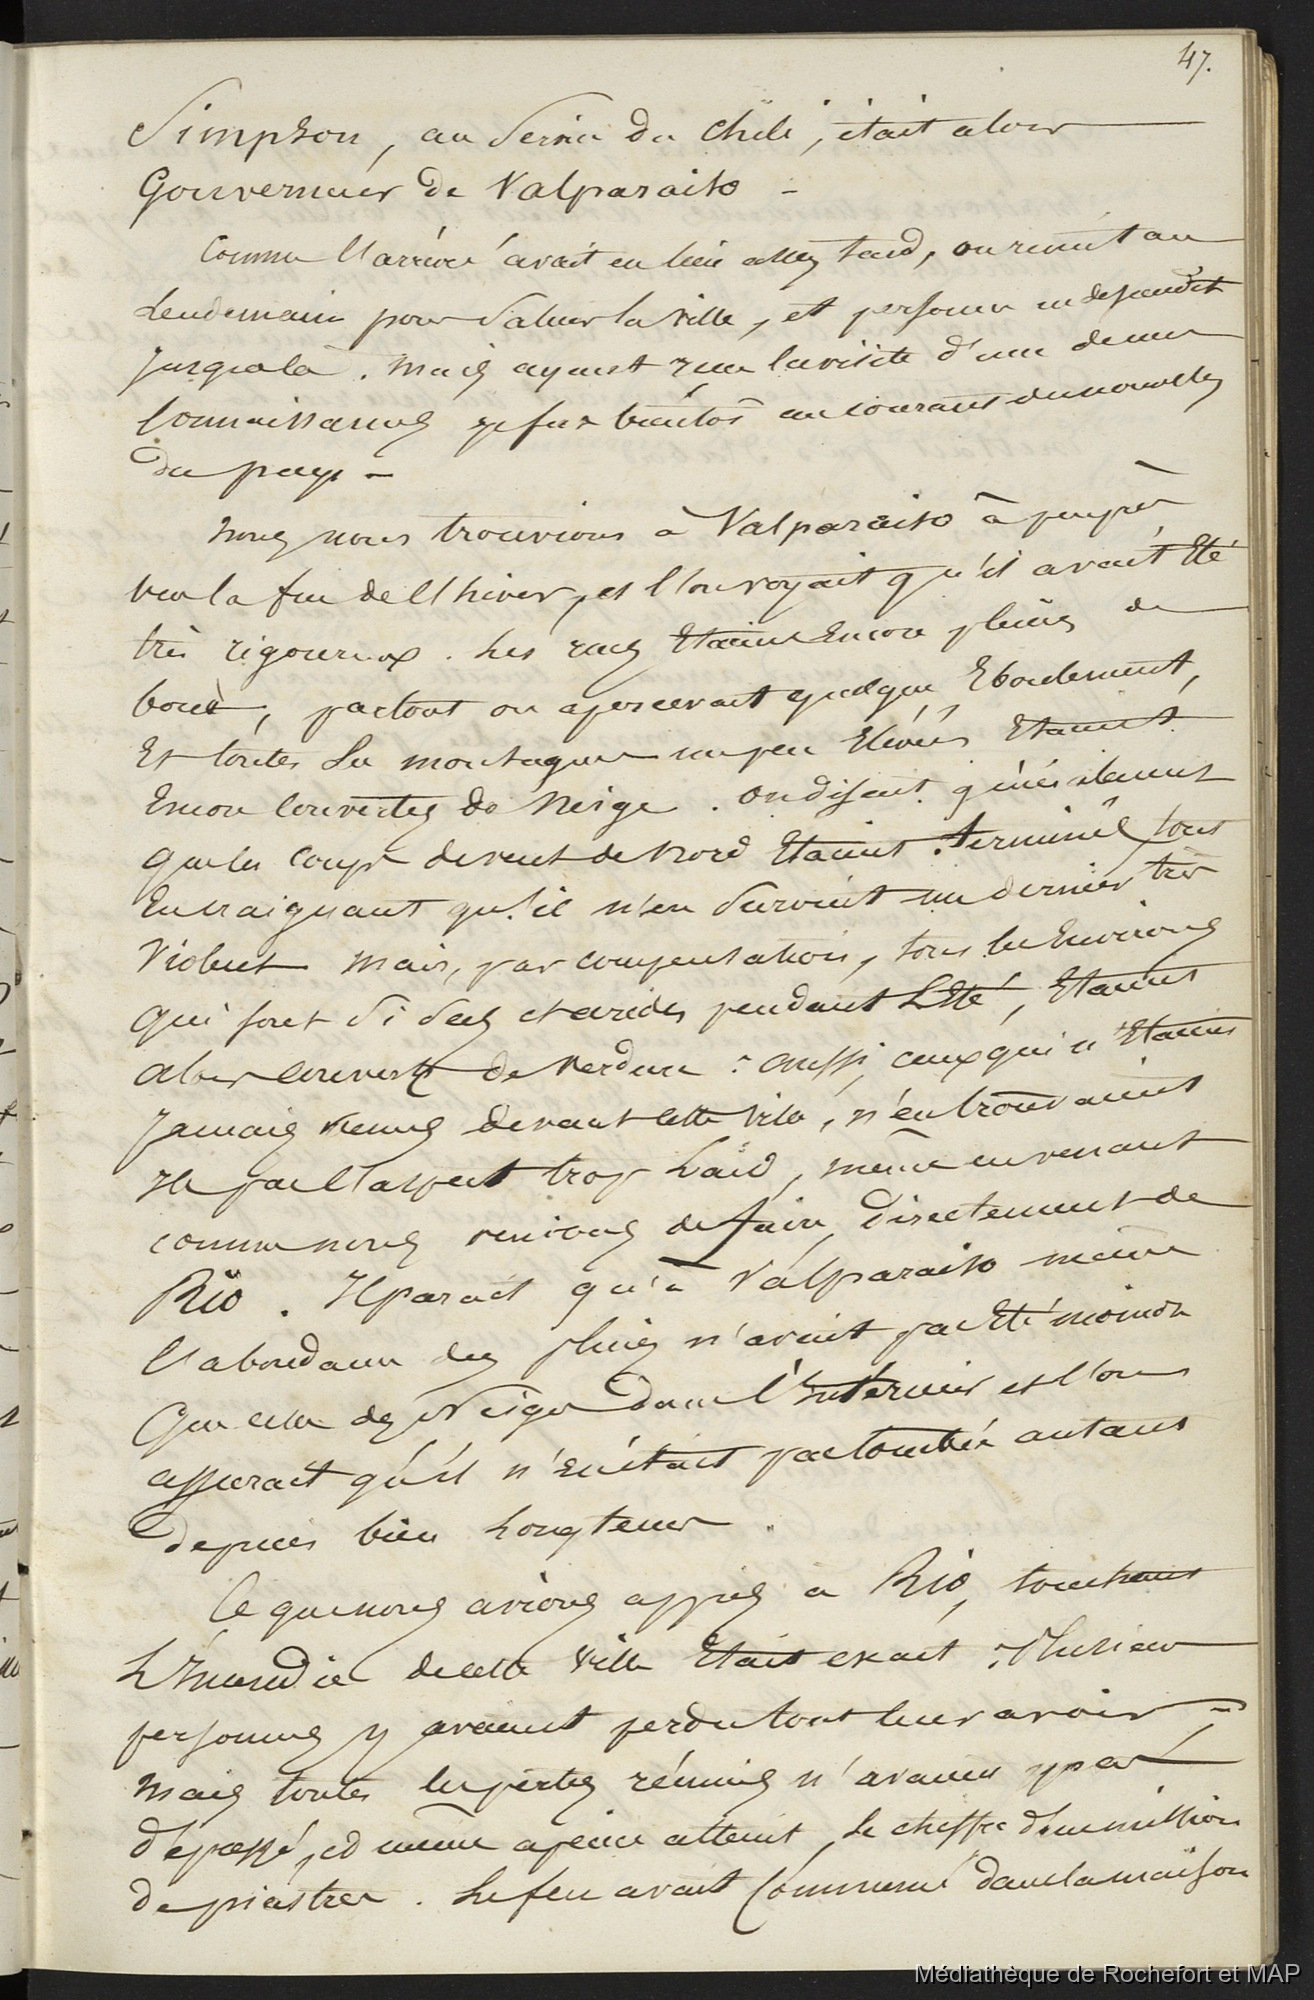 47.
Simpson, au Service du Chili, était alors
Gouverneur de Valparaiso –
Comme l'arrivée avait eu lieu assez tard, on remit au
Lendemain pour Saluer la Ville, et personne ne descendit
Jusque là. Mais ayant reçu la visite d'une de mes
Connaissances je fus bientôt au courant des nouvelles
du pays –
Nous nous trouvions à Valparaiso à peu près
vers la fin de l'hiver, et l'on voyait qu'il avait Eté
très rigoureux. Les rues Etaient Encore pleines de
boue, partout on apercevait quelque Eboulement,
Et toutes Les montagnes un peu Elevées Etaient
Encore Couvertes de Neige. On disait généralement
que les Coups de vent de Nord Etaient terminés, tout
En craignant qu'il n'en Survint un dernier très
Violent mais, par compensation, tous les Environs
qui sont Si Secs et arides pendant L'Eté, Etaient
alors couverts de verdure : aussi, ceux qui n'Etaient
Jamais venus devant cette Ville, n'en trouvaient
Ils pas l'aspect trop Laid, même en venant
comme nous venions de faire, directement de
Rio. Il parait qu'à Valparaiso même
l'abondance des pluies n'avait pas Eté moindre
Que celle des Neiges dans l'Intérieur et l'on
assurait qu'il n'en était pas tombée autant
depuis bien Longtems.
Ce que nous avions appris à Rio, touchant
L'Incendie de cette Ville Etait exact : Plusieurs
personnes y avaient perdu tout leur avoir –
Mais toutes les pertes réunies n'avaient pas
dépassé, et même à peine atteint, Le chiffre d'un million
de piastres. Le feu avait Commencé dans la maison
Médiathèque de Rochefort et MAP